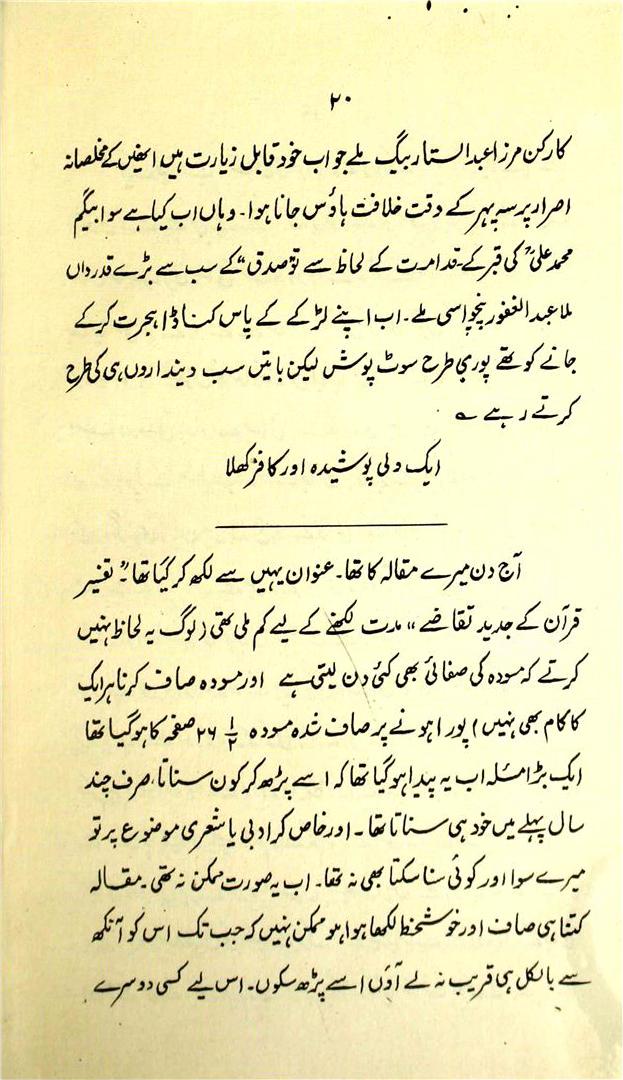 ۲۰
کارکن مرزا عبدالستار بیگ ملے جو اب خود قابل زیارت ہیں انھیں کے مخلصانہ
اصرار پر سہ پہر کے وقت خلافت ہاؤس جانا ہوا۔ وہاں اب کیا ہے سوا بیگم
محمد علیؒ کی قبر کے۔ قدامت کے لحاظ سے تو "صدق" کے سب سے بڑے قدرداں
ملا عبدالغفور پنچواسی ملے۔ اب اپنے لڑکے کے پاس کناڈا ہجرت کرکے
جانے کو تھے پوری طرح سوٹ پوش لیکن باتیں سب دینداروں ہی کی طرح
کرتے رہے ؎
ایک ولی پوشیدہ اور کافر کھلا
آج دن میرے مقالہ کا تھا۔ عنوان یہیں سے لکھ کر گیا تھا۔ "تفسیر
قرآن کے جدید تقاضے" مدت لکھنے کے لیے کم ملی تھی (لوگ یہ لحاظ نہیں
کرتے کہ مسودہ کی صفائی بھی کئی دن لیتی ہے اور مسودہ صاف کرنا ہر ایک
کا کام بھی نہیں) پورا ہونے پر صاف شدہ مسودہ ۲۶ ½ صفحہ کا ہوگیا تھا
ایک بڑا مسئلہ اب یہ پیدا ہوگیا تھا کہ اسے پڑھ کر کون سناتا، صرف چند
سال پہلے میں خود ہی سناتا تھا۔ اور خاص کر ادبی یا شعری موضوع پر تو
میرے سوا اور کوئی سنا سکتا بھی نہ تھا۔ اب یہ صورت ممکن نہ تھی۔ مقالہ
کتنا ہی صاف اور خوشخط لکھا ہوا ہو ممکن نہیں کہ جب تک اس کو آنکھ
سے بالکل ہی قریب نہ لے آؤں اسے پڑھ سکوں۔ اس لیے کسی دوسرے